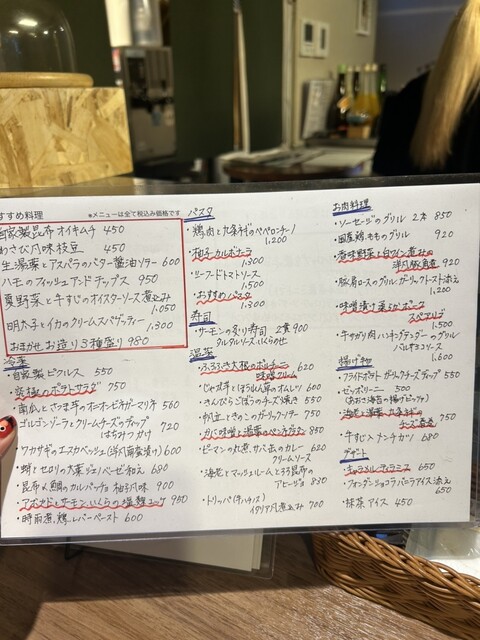 すすめ料理
※メニューは全て税込み価格です
自家製昆布オイキムチ 450
わさび風味枝豆 450
生湯葉とアスパラのバター醤油ソテー 600
ハモのフィッシュアンドチップス 950
夏野菜と牛すじのオイスターソース煮込み
1,050
明太子とイカのクリームスパゲッティー
1,300
おまかせお造り3種盛り 980
冷菜
・自家製ピクルス 550
・究極のポテトサラダ 750
・南瓜とさつま芋のオニオンビネガーマリネ 560
・ゴルゴンゾーラとクリームチーズのディップ
はちみつがけ 720
・ワカサギのエスカベッシュ(洋風南蛮漬) 600
・蛸とセロリの大葉ジェノベーゼ和え 680
・昆布〆鯛のカルパッチョ 柚子風味 900
・アボカドとサーモン、いくらの塩麹ユッケ 950
・時雨煮、鶏レバーペースト 600
パスタ
・鶏肉と九条ネギのペペロンチーノ
1,200
・柚子カルボナーラ
1,300
・シーフードトマトソース
1,500
・おすすめパスタ
1,300
寿司
・サーモンの炙り寿司 2貫 900
タルタルソース、いくらのせ
温菜
・ふろふき大根のポルチーニ
味噌クリーム 620
・じゃが芋とほうれん草のオムレツ 600
・きんぴらごぼうのチーズ焼き 550
・帆立ときのこのガーリックソテー 750
・カニ味噌と湯葉のペンネグラタン 850
・ピーマンの肉煮、サバ缶のカレー
クリームソース 620
・海老とマッシュルームとうろ昆布の
アヒージョ 830
・トリッパ(牛ハチノス)
イタリア風煮込み 700
お肉料理
・ソーセージのグリル 2本 850
・国産鶏ももグリル 920
・香味野菜と白ワイン煮込み
洋風豚角煮 920
・豚肩ロースのグリル、ガーリックトースト添え
1,200
・味噌漬け
スペアリブ
1,500
・牛サガリ肉ハンギングテンダーのグリル
バルサミコソース
1,600
揚げ物
・フライドポテト ガーリックチーズディップ 550
・ゼッポリーニ 500
(あおさ海苔の揚げピッツァ)
・海老と湯葉、九条ネギの
チーズ春巻 750
・牛すじ入りメンチカツ 680
デザート
・キャラメルティラミス 650
・フォンダンショコラ バニラアイス添え
650
・抹茶アイス 450